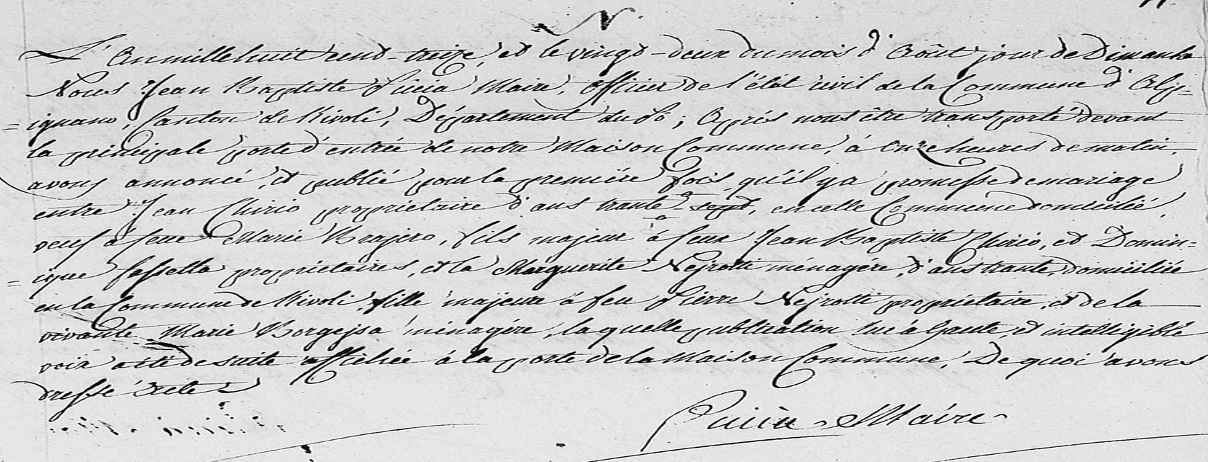 N.
L'An mille huit cent treize, et le vingt-deux du mois d'Août jour de Dimanche
Nous Jean Baptiste Maire, Officier de l'état civil de la Commune d'Alp=
=ignano, Canton de Rivoli, Département du Pô; Après nous être transporté devant
la principale porte d'entrée de notre Maison Commune, à onze heures de matin,
avons annoncé, et publié pour la première fois qu'il y a promesse de mariage
entre Jean Chirio propriétaire d'ans trente, en celle Commune domicilié,
veuf à feue Marie Brajero, fils majeur à feux Jean Baptiste Chirio, et Domin=
=ique Fassella propriétaires, et la Marguerite Negrotti ménagère, d'ans trente, domiciliée
en la Commune de Rivoli, fille majeure à feu Pierre Negrotti propriétaire, et de la
vivante Marie ménagère, la quelle publication lue à haute et intelligible
voix a été de suite affichée à la porte de la Maison Commune, De quoi avons
dressé acte
Maire